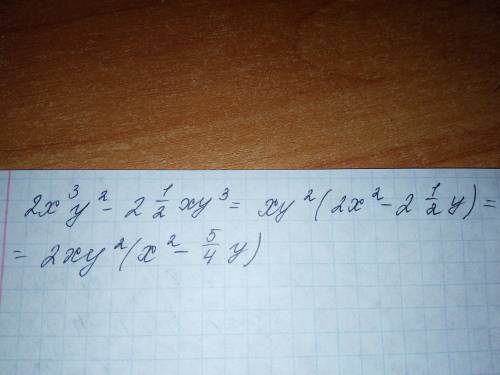 2x³y² - 2 1/2 xy³ = xy²(2x² - 2 1/2 y) =
= 2xy²(x² - 5/4 y)